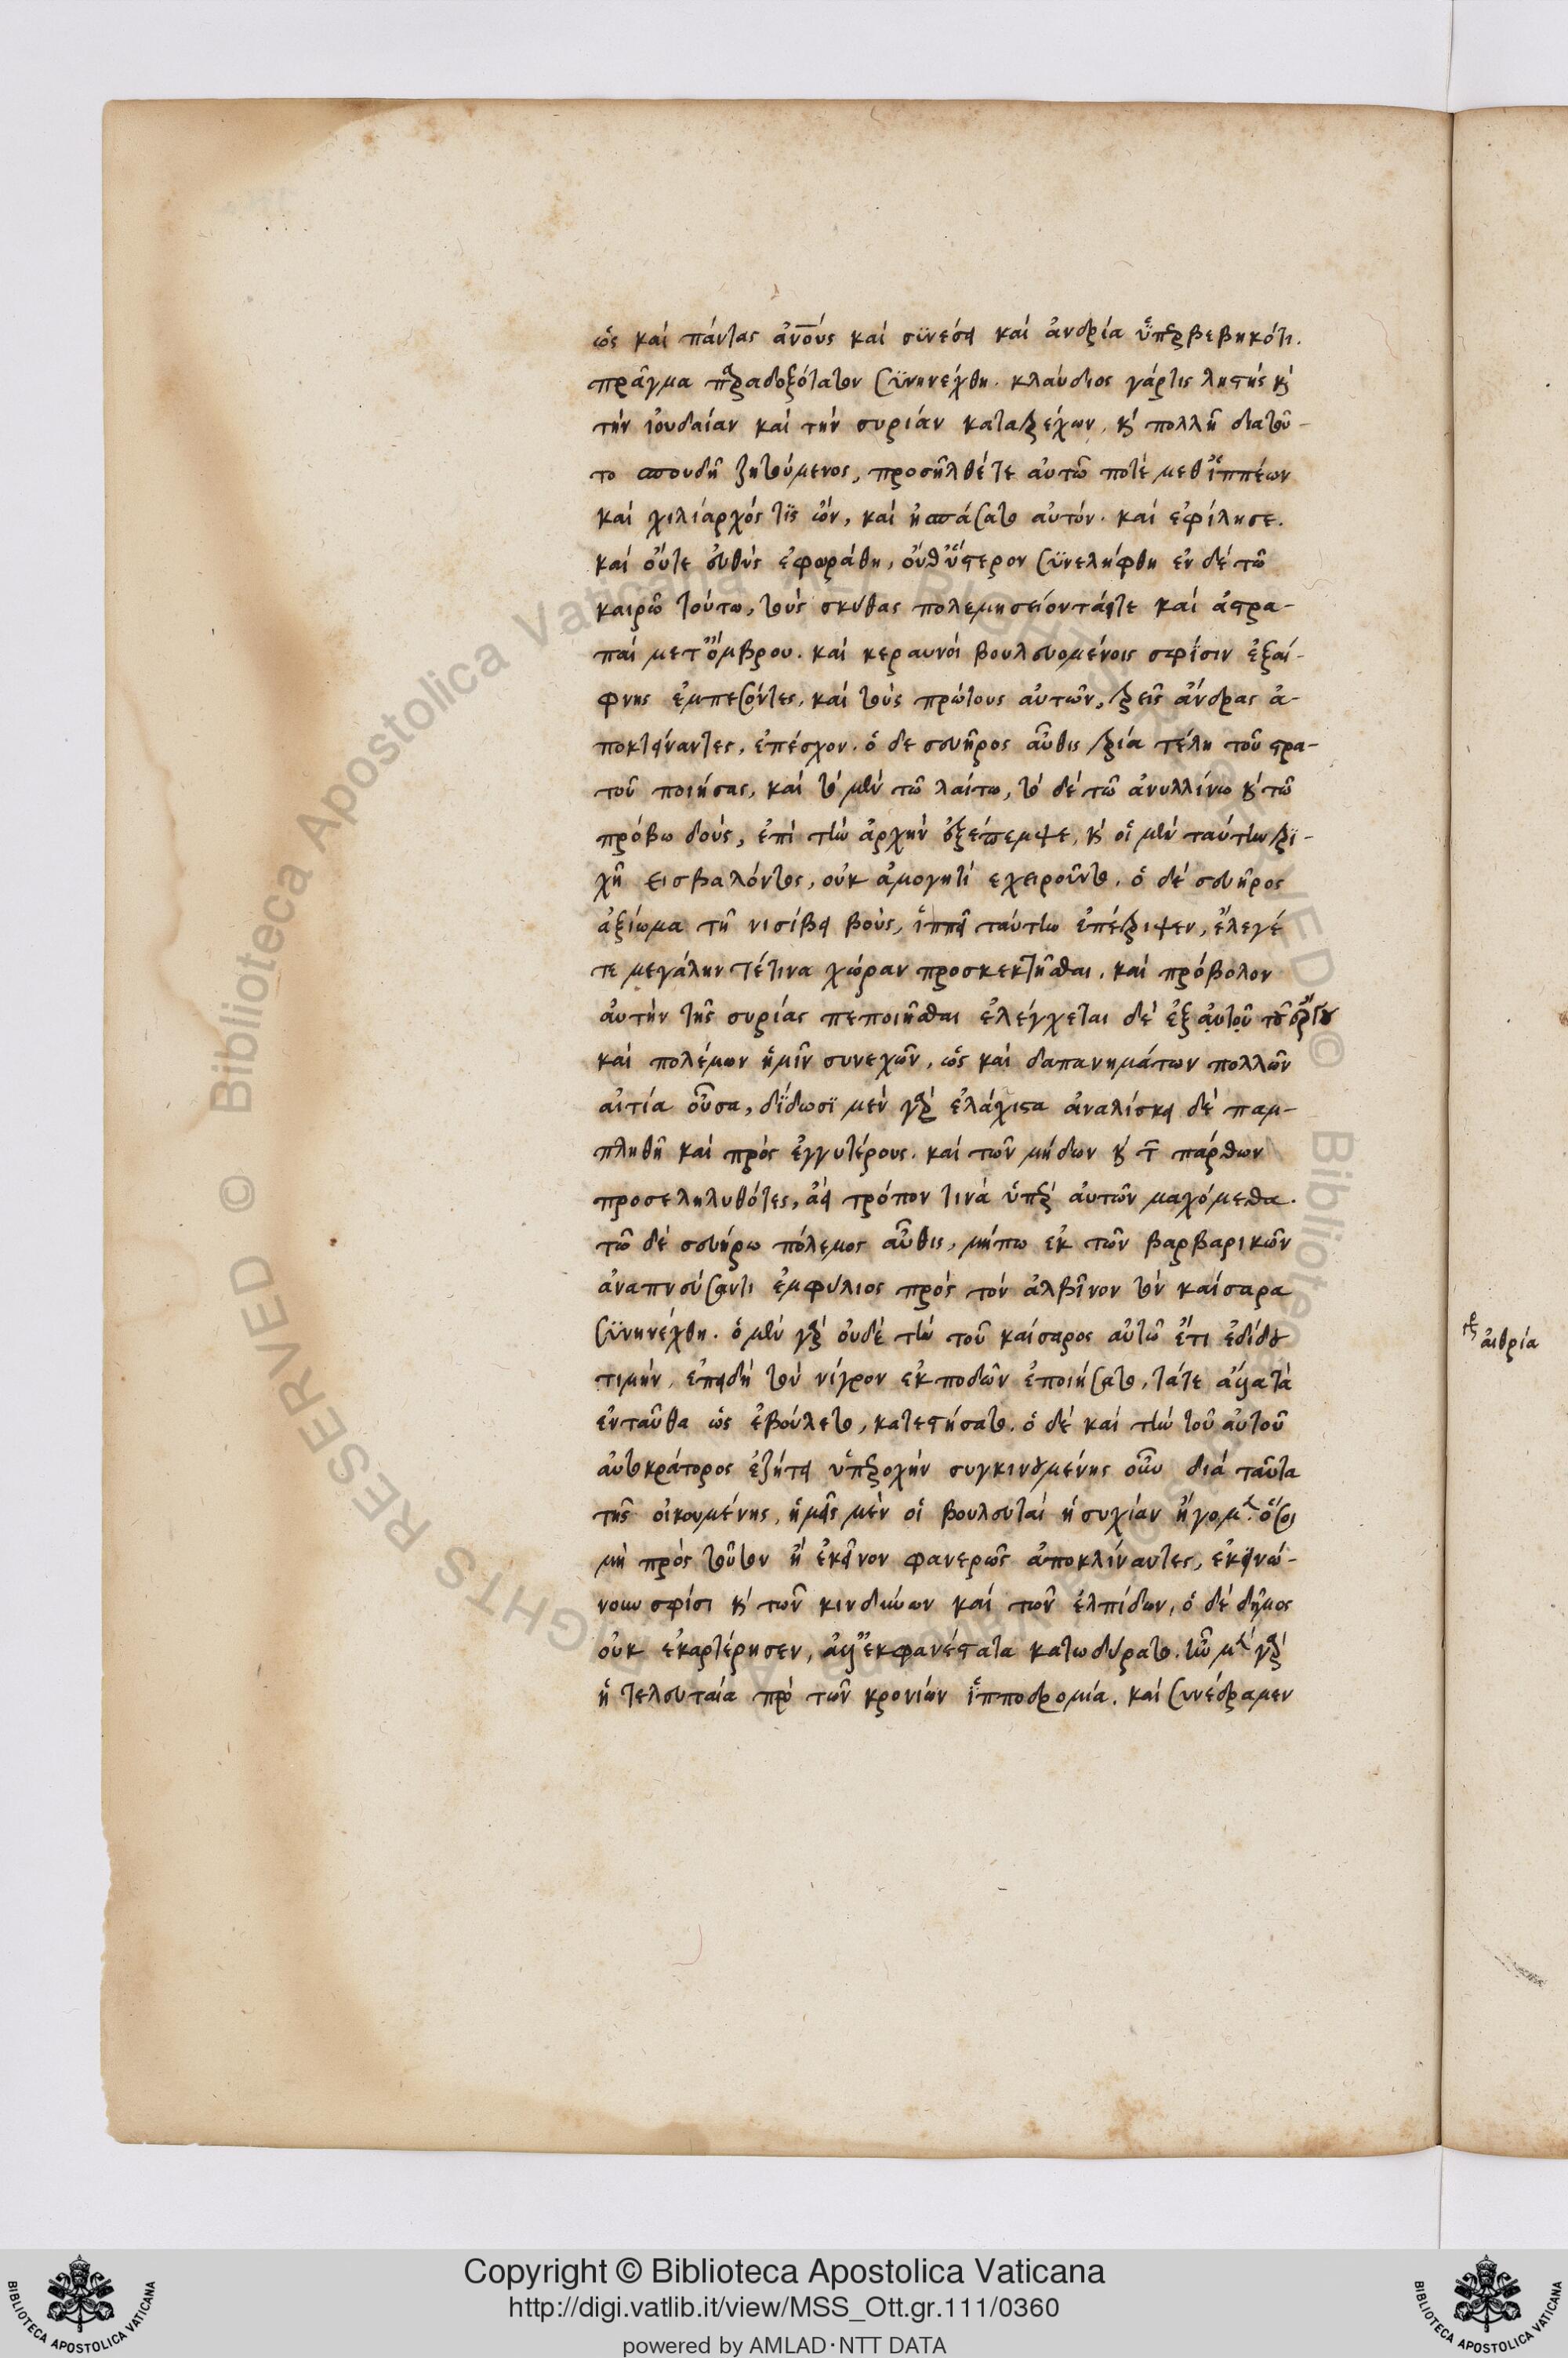 ὡς καὶ πάντας ἀν̅ο̅υς καὶ συνέσει καὶ ἀνδρία ὑπερβεβηκότι.
πρᾶγμα παραδοξότατον συνηνέχθη. κλαύδιος γάρ τις ληστὴς κ
τὴν ἰουδαίαν καὶ τὴν συρίαν κατατρέχων, κ πολλῆ διατοῦ-
το σπουδῆ ζητούμενος, προσῆλθέ τε αὐτῶ ποτὲ μεθ ἱππέων
καὶ χιλίαρχός τις ὢν, καὶ ἠσπάσατο αὐτόν. καὶ ἐφίλησε.
καὶ οὔτε εὐθὺς ἐφωράθη, οὔθ ὕστερον συνελήφθη ἐν δὲ τῶ
καιρῶ τούτω, τοὺς σκύθας πολεμησείοντάς τε καὶ ἀστρα-
παὶ μετ ὄμβρου. καὶ κεραυνοὶ βουλευομένοις σφίσιν ἐξαί-
φνης ἐμπεσόντες, καὶ τοὺς πρώτους αὐτῶν, τρεῖς ἄνδρας ἀ-
ποκτείναντες, ἐπέσχον. ὁ δε σευῆρος αὖθις τρία τέλη τοῦ στρα-
τοῦ ποιήσας, καὶ τὸ μὲν τῶ λαίτω, τὸ δὲ τῶ ἀνυλλίνω κ τῶ
πρόβω δοὺς, ἐπὶ τὴν ἀρχὴν ἐξέπεμψε, κ οἱ μὲν ταύτην τρι-
χῆ εἰσβαλόντος, οὐκ ἀμογητὶ ἐχειροῦντο. ὁ δὲ σευῆρος
ἀξίωμα τῆ νισίβει βοὺς, ἱππεῖ ταύτην ἐπέτριψεν, ἔλεγέ
τε μεγάλην τέτινα χώραν προσκεκτῆσθαι. καὶ πρόβολον
αὐτὴν τῆς συρίας πεποιῆσθαι ἐλέγχεται δὲ ἐξ αὐτοῦ τοῦ ἔργου
καὶ πολέμων ἡμῖν συνεχῶν, ὡς καὶ δαπανημάτων πολλῶν
αἰτία οὖσα, δίδωσι μὲν γὰρ ἐλάχιστα ἀναλίσκει δὲ παμ-
πληθῆ καὶ πρὸς ἐγγυτέρους. καὶ τῶν μήδων κ τ πάρθων
προσεληλυθότες, ἀεὶ τρόπον τινὰ ὑπὲρ αὐτῶν μαχόμεθα.
τῶ δὲ σευήρω πόλεμος αὖθις, μήπω ἐκ τῶν βαρβαρικῶν
ἀναπνεύσαντι ἐμφύλιος πρὸς τὸν ἀλβῖνον τὸν καίσαρα
συνηνέχθη. ὁ μὲν γὰρ οὐδὲ τὴν τοῦ καίσαρος αὐτῶ ἔτι ἐδίδου
τιμήν, ἐπειδὴ τὸν νίγρον ἐκποδῶν ἐποιήσατο, τάτε ἄλλα τὰ
ἐνταῦθα ὡς ἐβούλετο, κατεστήσατο. ὁ δὲ καὶ τὴν τοῦ αὐτοῦ
αὐτοκράτορος ἐζήτει ὑπεροχήν συγκινουμένης οὖν διὰ ταῦτα
τῆς οἰκουμένης, ἡμεῖς μὲν οἱ βουλευταὶ ἡσυχίαν ἤγομεν. ὅσοι
μὴ πρὸς τοῦτον ἢ ἐκεῖνον φανερῶς ἀποκλίναντες, ἐκοινώ-
νουν σφίσι κ τῶν κινδύνων καὶ τῶν ἐλπίδων, ὁ δὲ δῆμος
οὐκ ἐκαρτέρησεν, ἀλλ ἐκφανέστατα κατωδύρατο. ἦν μὲν γὰρ
ἡ τελευταία πρὸ τῶν κρονίων ἱπποδρομία. καὶ συνέδραμεν
αἰθρία
Copyright © Biblioteca Apostolica Vaticana
http://digi.vatlib.it/view/MSS_Ott.gr.111/0360
powered by AMLAD·NTT DATA